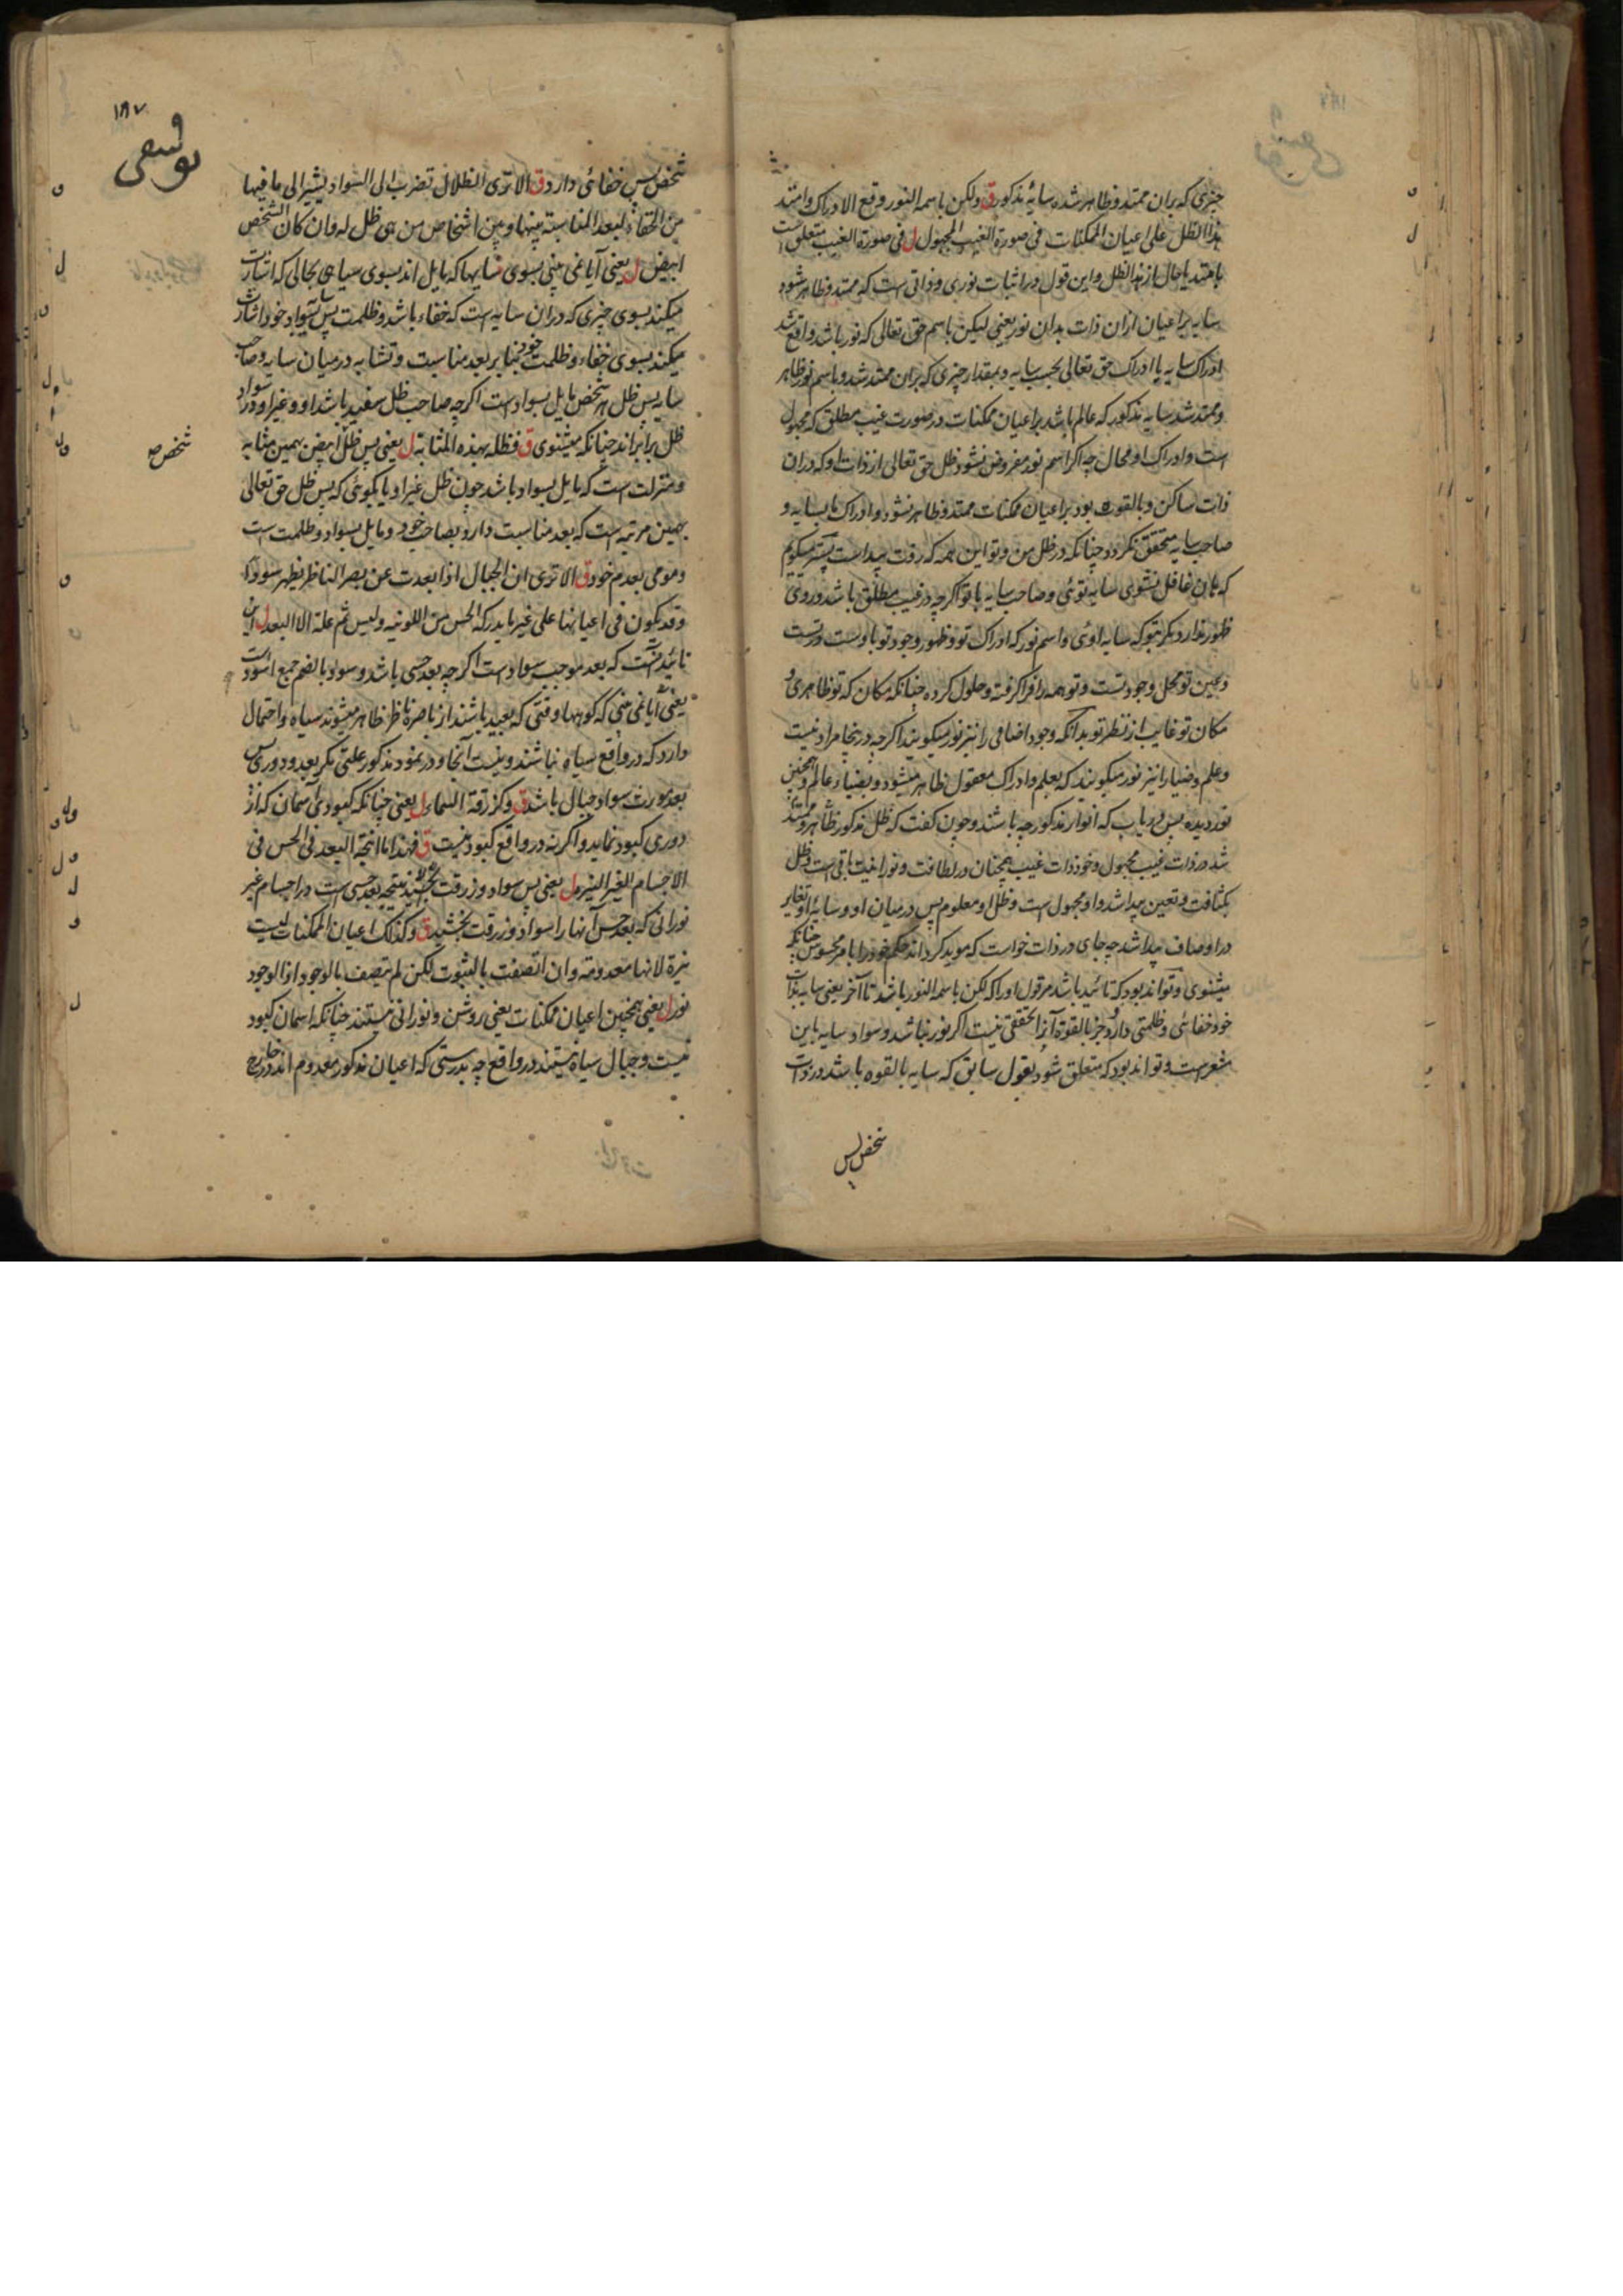 چیزی که بران ممتد و ظاهر شده سایهٔ مذکور ق ولکن باسمه النور وقع الادراک وامتد
هذا الظل علی اعیان الممکنات فی صورة الغیب المجهول ل فی صورة الغیب متعلق است
بامتد یا حال از هذا الظل واین قول در اثبات نوری و ذاتی ست که ممتد و ظاهر شود
سایه بر اعیان ازان ذات بدان نور یعنی لیکن باسم حق تعالی که نور باشد واقع شد
ادراک سایه یا ادراک حق تعالی بحسب سایه و بمقدار چیزی که بران ممتد شد و باسم نور ظاهر
و ممتد شد سایه مذکور که عالم باشد بر اعیان ممکنات در صورت غیب مطلق که مجهول
است و ادراک او محال چه اگر اسم نور مفروض نشود ظل حق تعالی از ذات او که دران
ذات ساکن و بالقوه بود بر اعیان ممکنات ممتد و ظاهر نشود و ادراک ما بسایه و
صاحب سایه متحقق نگردد چنانکه در ظل من و تو این همه که رفت پیداست
که تا ان غافل نشوی سایه توئی و صاحب سایه با تو اگرچه در غیب مطلق باشد و روی
ظهور ندارد مگر بتو که سایه اوئی و اسم نور که ادراک تو و ظهور وجود تو باوست در تست
و عین تو محل وجود تست و تو همه را فرا گرفته و حلول کرده چنانکه مکان که تو ظاهری و
مکان تو غایب از نظر تو بدانکه وجود اضافی را نیز نور میگویند اگرچه درینجا مراد نیست
و علم و ضیا را نیز نور میگویند که بعلم و ادراک معقول ظاهر میشود و بضیاء عالم و همچنین
نور دیده پس دریاب که انوار مذکور چه باشند و چون گفت که ظل مذکور ظاهر و ممتد
شد در ذات غیب مجهول و خود ذات غیب همچنان در لطافت و نورانیت باقی است و ظل
بکثافت و تعین پیدا شد و او مجهول است و ظل او معلوم پس در میان او و سایهٔ او تغایر
در اوصاف پیدا شد چه جای در ذات خواست که موید گرداند حکم خود را بامر محسوس چنانکه
میشنوی و تواند بود که تائید باشد مر قول او را که لکن باسمه النور باشد تا آخر یعنی سایه بذات
خود خفائی و ظلمتی دارد و جز بالقوه آنرا تحققی نیست اگر نور نباشد و سواد سایه باین
مشعر است و تواند بود که متعلق شود بقول سابق که سایه بالقوه باشد در ذات
شخص پس
۱۸۷
یوسفی
شخص پس خفائی دارد ق الا تری الظلال تضرب الی السواد یشیر الی ما فیها
من الخفاء لبعد المناسبة بینها و بین اشخاص من هی ظل له وان کان الشخص
ابیض ل یعنی آیا نمی بینی بسوی سایها که مایل اند بسوی سیاهی بحالی که اشارت
میکند بسوی چیزی که دران سایه است که خفاء باشد و ظلمت پس بسواد خود اشارت
میکند بسوی خفاء و ظلمت خود بنا بر بعد مناسبت و تشابه در میان سایه و صاحب
سایه پس ظل هر شخص مایل بسواد است اگرچه صاحب ظل سفید باشد او و غیر او در سواد
ظل برابراند چنانکه میشنوی ق فظله بهذه المثابة ل یعنی پس ظل ابیض بهمین مثابه
شخص ص
و منزلت است که مایل بسواد باشد چون ظل غیر او یا بگوئی که پس ظل حق تعالی
بهمین مرتبه است که بعد مناسبت دارد بصاحب خود و مایل بسواد و ظلمت است
و مومی بعدم خود ق الا تری ان الجبال اذا بعدت عن بصر الناظر یظهر سودا
وقد یکون فی اعیانها علی غیر ما یدرکه الحس من اللونیه ولیس ثم علة الا البعد ل این
تائید آنست که بعد موجب سواد است اگرچه بعد حسی باشد و سواد بالضم جمع اسود است
یعنی آیا نمی بینی که کوهها وقتی که بعید باشند از باصرهٔ ناظر ظاهر میشوند سیاه و احتمال
دارد که در واقع سیاه نباشند و نیست آنجا و در نمود مذکور علتی مگر بعد و دوری پس
بعد مورث سواد جبال باشد ق وکزرقة السماء ل یعنی چنانکه کبودی آسمان که از
دوری کبود نماید و اگر نه در واقع کبود نیست ق فهذا ما انتجه البعد فی الحس فی
الاجسام الغیر النیره ل یعنی پس سواد و زرقت نتیجه بعد حسی است در اجسام غیر
نورانی که بعد حس آنها را سواد و زرقت بخشید ق وکذلک اعیان الممکنات لیست
نیرة لانها معدومة وان اتصفت بالثبوت لکن لم یتصف بالوجود اذ الوجود
نور ل یعنی همچنین اعیان ممکنات یعنی روشن و نورانی نیستند چنانکه آسمان کبود
نیست و جبال سیاه نیستند در واقع چه بدرستی که اعیان مذکور معدوم اند در خارج